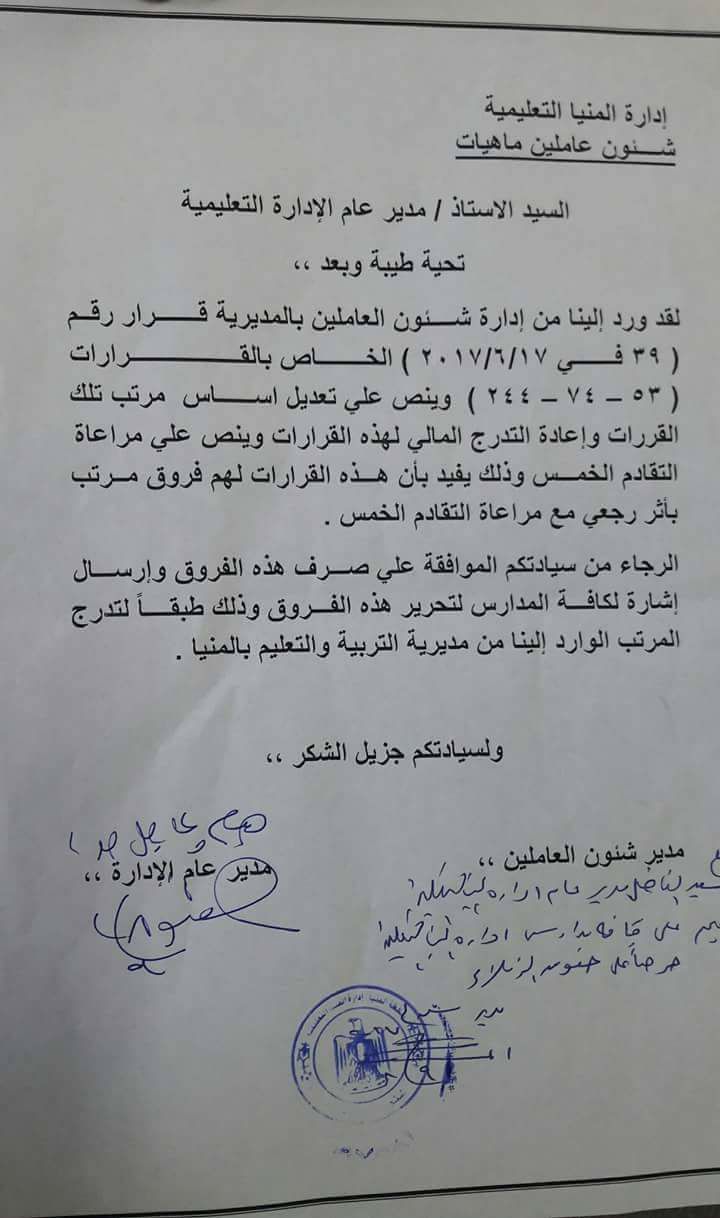 إدارة المنيا التعليمية
شـــئون عاملين ماهيات
السيد الاستاذ / مدير عام الإدارة التعليمية
تحية طيبة وبعد ،،
لقد ورد إلينا من إدارة شـــئون العاملين بالمديرية قـــرار رقـم
( ٣٩ فـــي ٢٠١٧/٦/١٧ ) الخـــاص بالقـــــرارات
( ٥٣ – ٧٤ – ٢٤٤ ) وينص علي تعديل اســـاس مرتب تلك
القررات وإعادة التدرج المالي لهذه القرارات وينص علي مراعاة
التقادم الخمـس وذلك يفيد بأن هـــذه القرارات لهم فروق مـرتب
بأثر رجعي مع مراعاة التقادم الخمس .
الرجاء من سيادتكم الموافقة علي صـرف هذه الفروق وإرســـال
إشارة لكافـة المدارس لتحرير هذه الفـروق وذلك طبقـــاً لتدرج
المرتب الوارد إلينا من مديرية التربية والتعليم بالمنيا .
ولسيادتكم جزيل الشكر ،،
هام وعاجل جدا
مدير شئون العاملين ،،
مدير عام الإدارة ،،
مدير عام إدارة
على كافة مدارس إدارة
حرصا على حقوق الزملاء
مدير